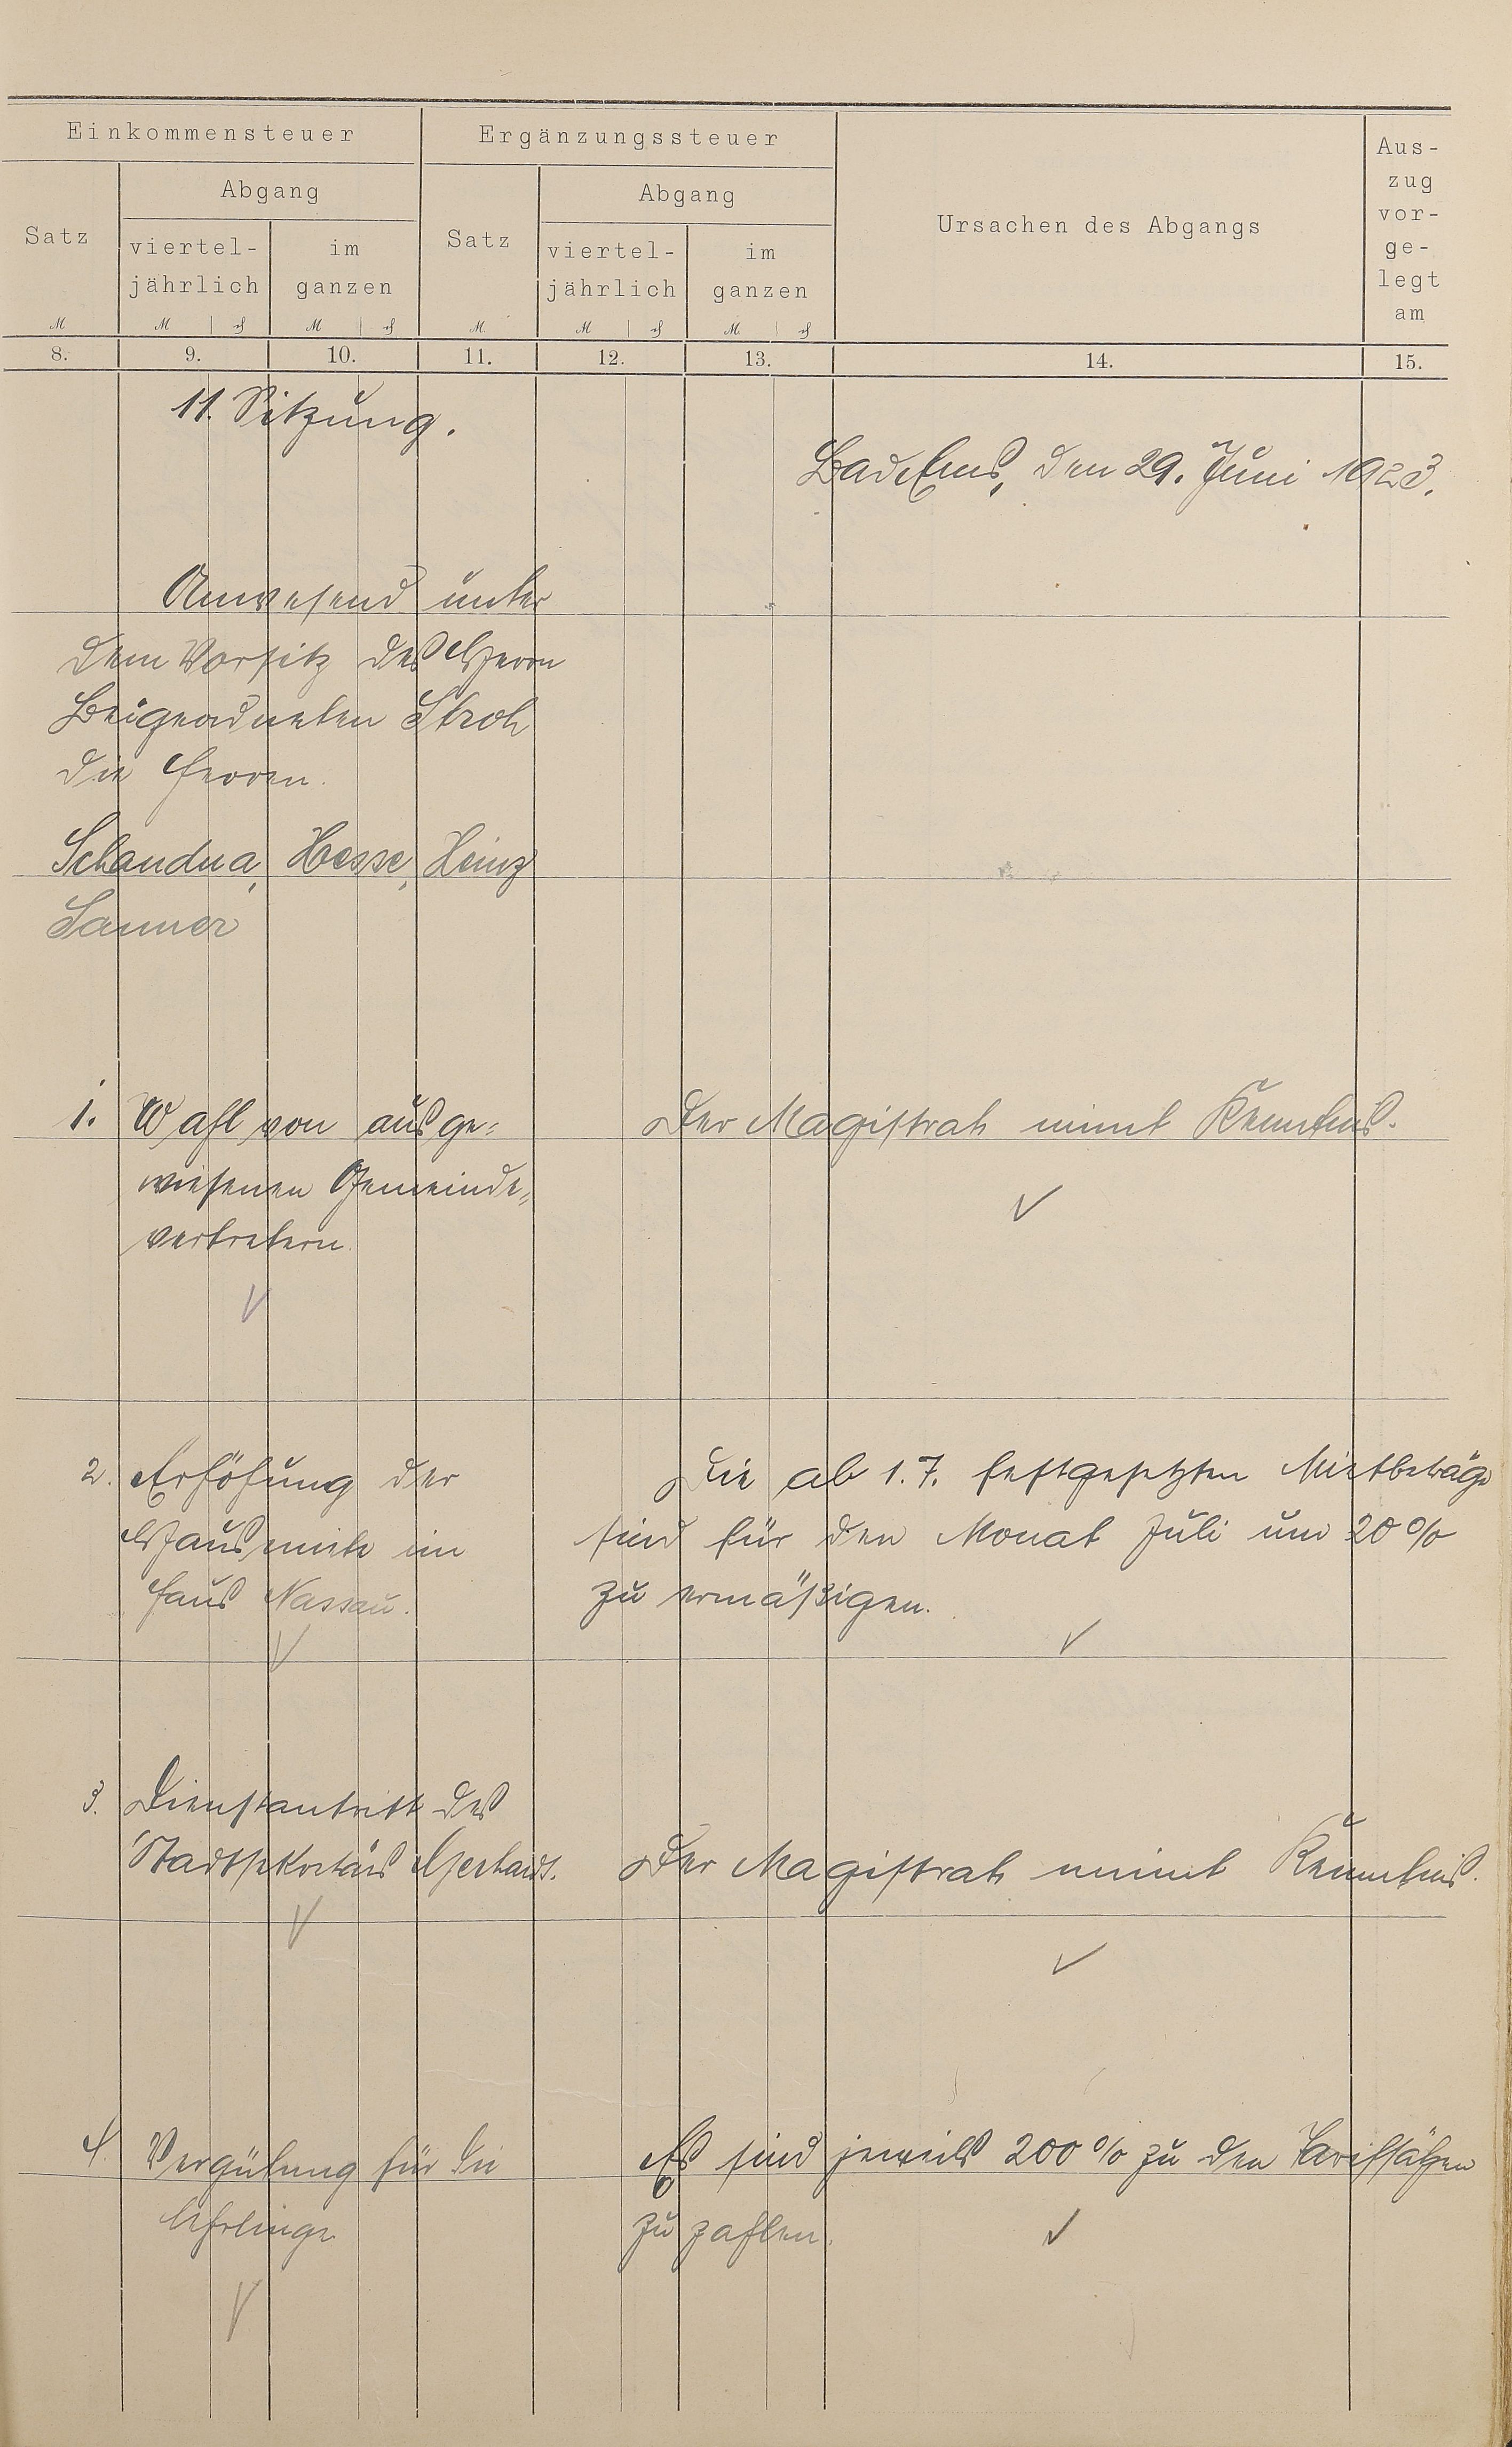 Einkommensteuer
Ergänzungssteuer
Ursachen des Abgangs
Aus-
zug
vor-
ge-
legt
am
Satz
Abgang
Satz
Abgang
viertel-
jährlich
im
ganzen
viertel-
jährlich
im
ganzen
M
M
M
M
M
M
8.
9.
10.
11.
12.
13.
14.
15.
11. Sitzung.
Bad Ems, den 29. Juni 1923.
Anwesend unter
dem Vorsitz des Herrn
Beigeordneten Stroh
die Herren
Schaudua, Hesse, Heinz
Sauner
1. Wahl von ausge=
wiesenen Gemeinde=
vertretern.
Der Magistrat nimt Kenntnis.
2. Erhöhung der
Hausmiete im
Haus Nassau.
Die ab 1.7. festgesetzten Mietbeträge
sind für den Monat Juli um 20%
zu ermäßigen.
3. Dienstantritt des
Stadtsekretärs Gerhard.
Der Magistrat nimmt Kenntnis.
4. Vergütung für die
Lehrlinge
Es sind jeweils 200% zu den Tarifsätzen
zu zahlen.